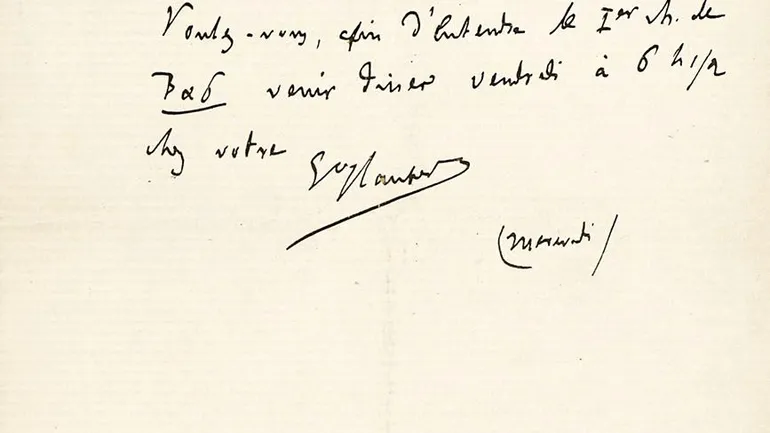 Voulez-vous, afin d'entendre le Ier ch. de
B & P venir diner vendredi à 6 h 1/2
chez votre
GveFlaubert
(mercredi)